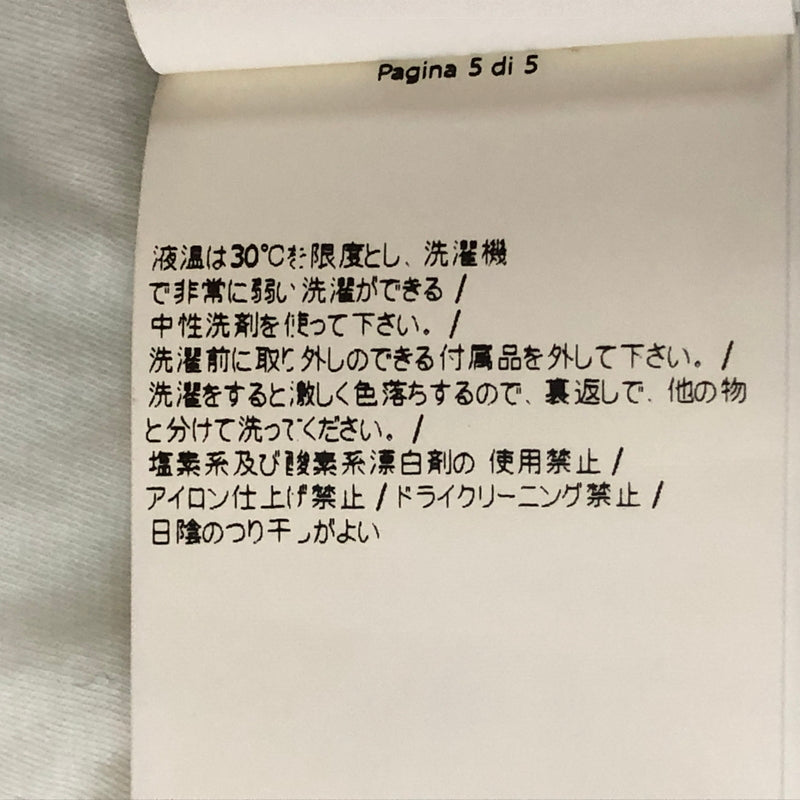 Pagina 5 di 5
液温は30℃を限度とし、洗濯機
で非常に弱い洗濯ができる /
中性洗剤を使って下さい。 /
洗濯前に取り外しのできる付属品を外して下さい。 /
洗濯をすると激しく色落ちするので、裏返しで、他の物
と分けて洗ってください。 /
塩素系及び酸素系漂白剤の 使用禁止 /
アイロン仕上げ禁止 / ドライクリーニング禁止 /
日陰のつり干しがよい